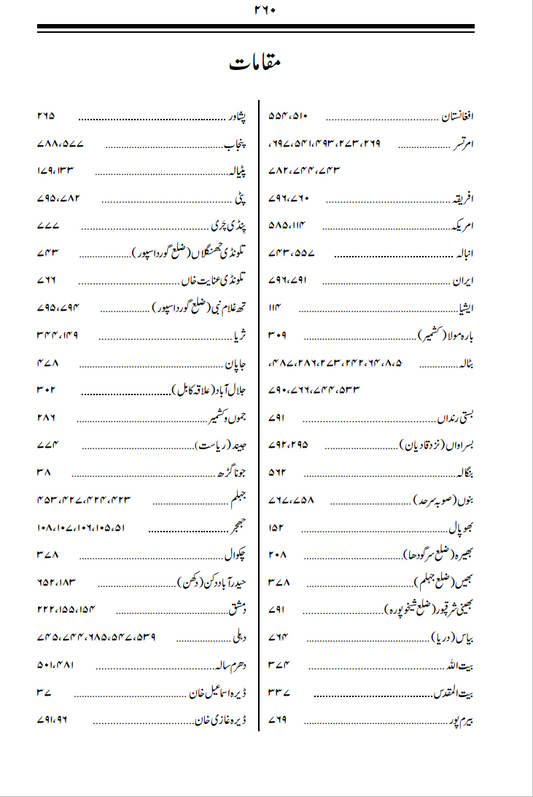 ۲۶۰
مقامات
افغانستان ........ ۵۱۰،۵۵۴
امرتسر ........ ۲۶۹،۲۷۳،۴۹۳،۵۴۱،۶۹۷،
۷۴۳،۷۴۴،۷۸۲
افریقہ ........ ۷۶۰،۷۹۶
امریکہ ........ ۱۱۴،۵۸۵
انبالہ ........ ۵۵۷،۷۴۳
ایران ........ ۷۹۱،۷۹۶
ایشیا ........ ۱۱۴
بارہ مولا (کشمیر) ........ ۳۰۹
بٹالہ ........ ۵،۸،۶۴،۲۴۲،۲۷۳،۲۸۶،۴۸۷،
۵۳۳،۷۴۴،۷۶۶،۷۹۰
بستی رنداں ........ ۷۹۱
بسراواں (نزد قادیان) ........ ۲۹۵،۷۹۲
بنگالہ ........ ۵۶۲
بنوں (صوبہ سرحد) ........ ۷۵۸،۷۶۷
بھوپال ........ ۱۵۲
بھیرہ (ضلع سرگودھا) ........ ۲۰۸
بھیں (ضلع جہلم) ........ ۳۷۸
بھینی شرقپور (ضلع شیخوپورہ) ........ ۷۹۱
بیاس (دریا) ........ ۷۶۴
بیت اللہ ........ ۳۷۴
بیت المقدس ........ ۳۳۷
بیرم پور ........ ۷۶۹
پشاور ........ ۲۶۵
پنجاب ........ ۵۷۷،۷۸۸
پٹیالہ ........ ۱۳۳،۱۷۹
پٹی ........ ۷۸۲،۷۹۵
پنڈی چری ........ ۷۷۷
تلونڈی جھنگلاں (ضلع گورداسپور) ........ ۷۴۳
تلونڈی عنایت خاں ........ ۷۶۶
تھہ غلام نبی (ضلع گورداسپور) ........ ۷۹۴،۷۹۵
ثریا ........ ۱۴۹،۳۴۴
جاپان ........ ۴۷۸
جلال آباد (علاقہ کابل) ........ ۳۰۲
جموں و کشمیر ........ ۲۸۶
جیند (ریاست) ........ ۷۷۴
جونا گڑھ ........ ۳۸
جہلم ........ ۴۲۳،۴۲۴،۴۲۷،۴۵۳
جھجر ........ ۵۱،۱۰۵،۱۰۶،۱۰۷،۱۰۸
چکوال ........ ۳۷۸
حیدر آباد دکن (دکھن) ........ ۱۸۳،۶۵۲
دمشق ........ ۱۵۴،۱۵۵،۲۲۲
دہلی ........ ۵۳۹،۵۴۷،۶۸۵،۷۴۴،۷۴۵
دھرم سالہ ........ ۴۸۱،۵۰۱
ڈیرہ اسماعیل خان ........ ۳۷
ڈیرہ غازی خان ........ ۹۶،۷۹۱